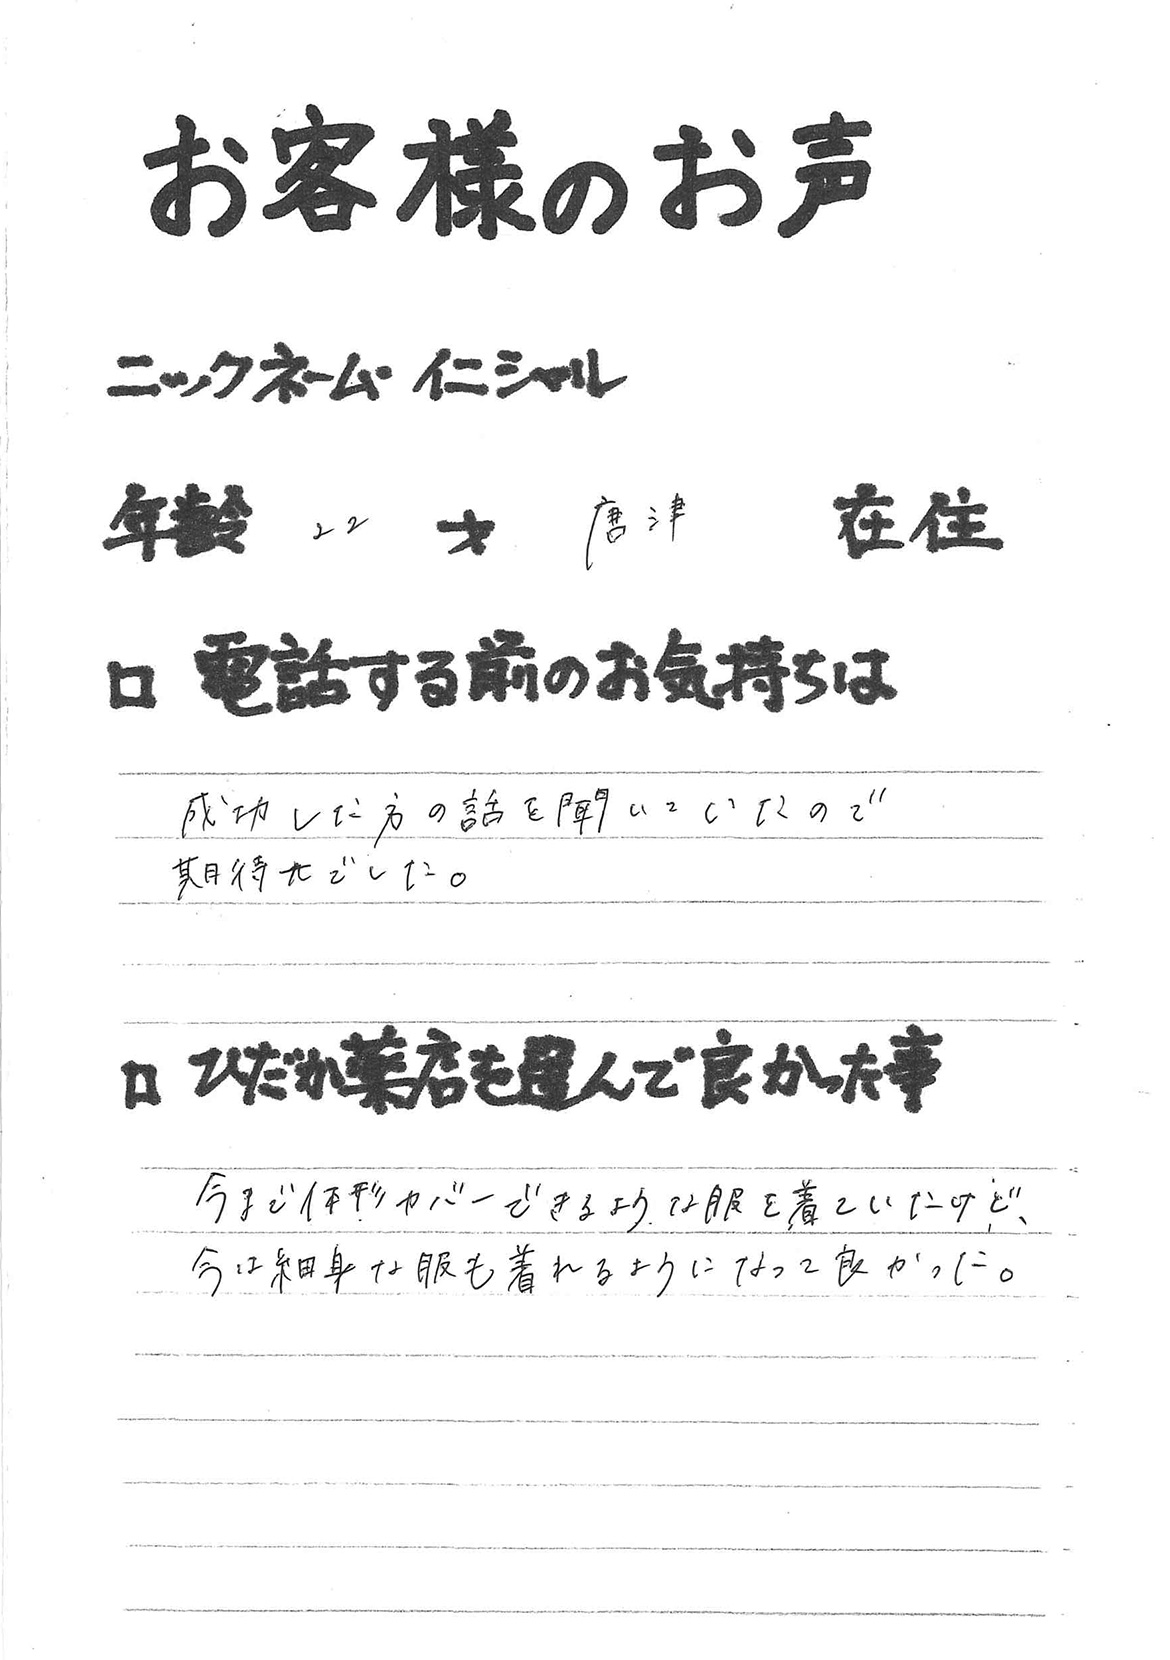 お客様のお声
ニックネーム・イニシャル
年齢 22 才 唐津 在住
□ 電話する前のお気持ちは
成功した方の話を聞いていたので
期待大でした。
□ ひだか薬店を選んで良かった事
今まで体形カバーできるような服を着ていたけど、
今は細身な服も着れるようになって良かった。